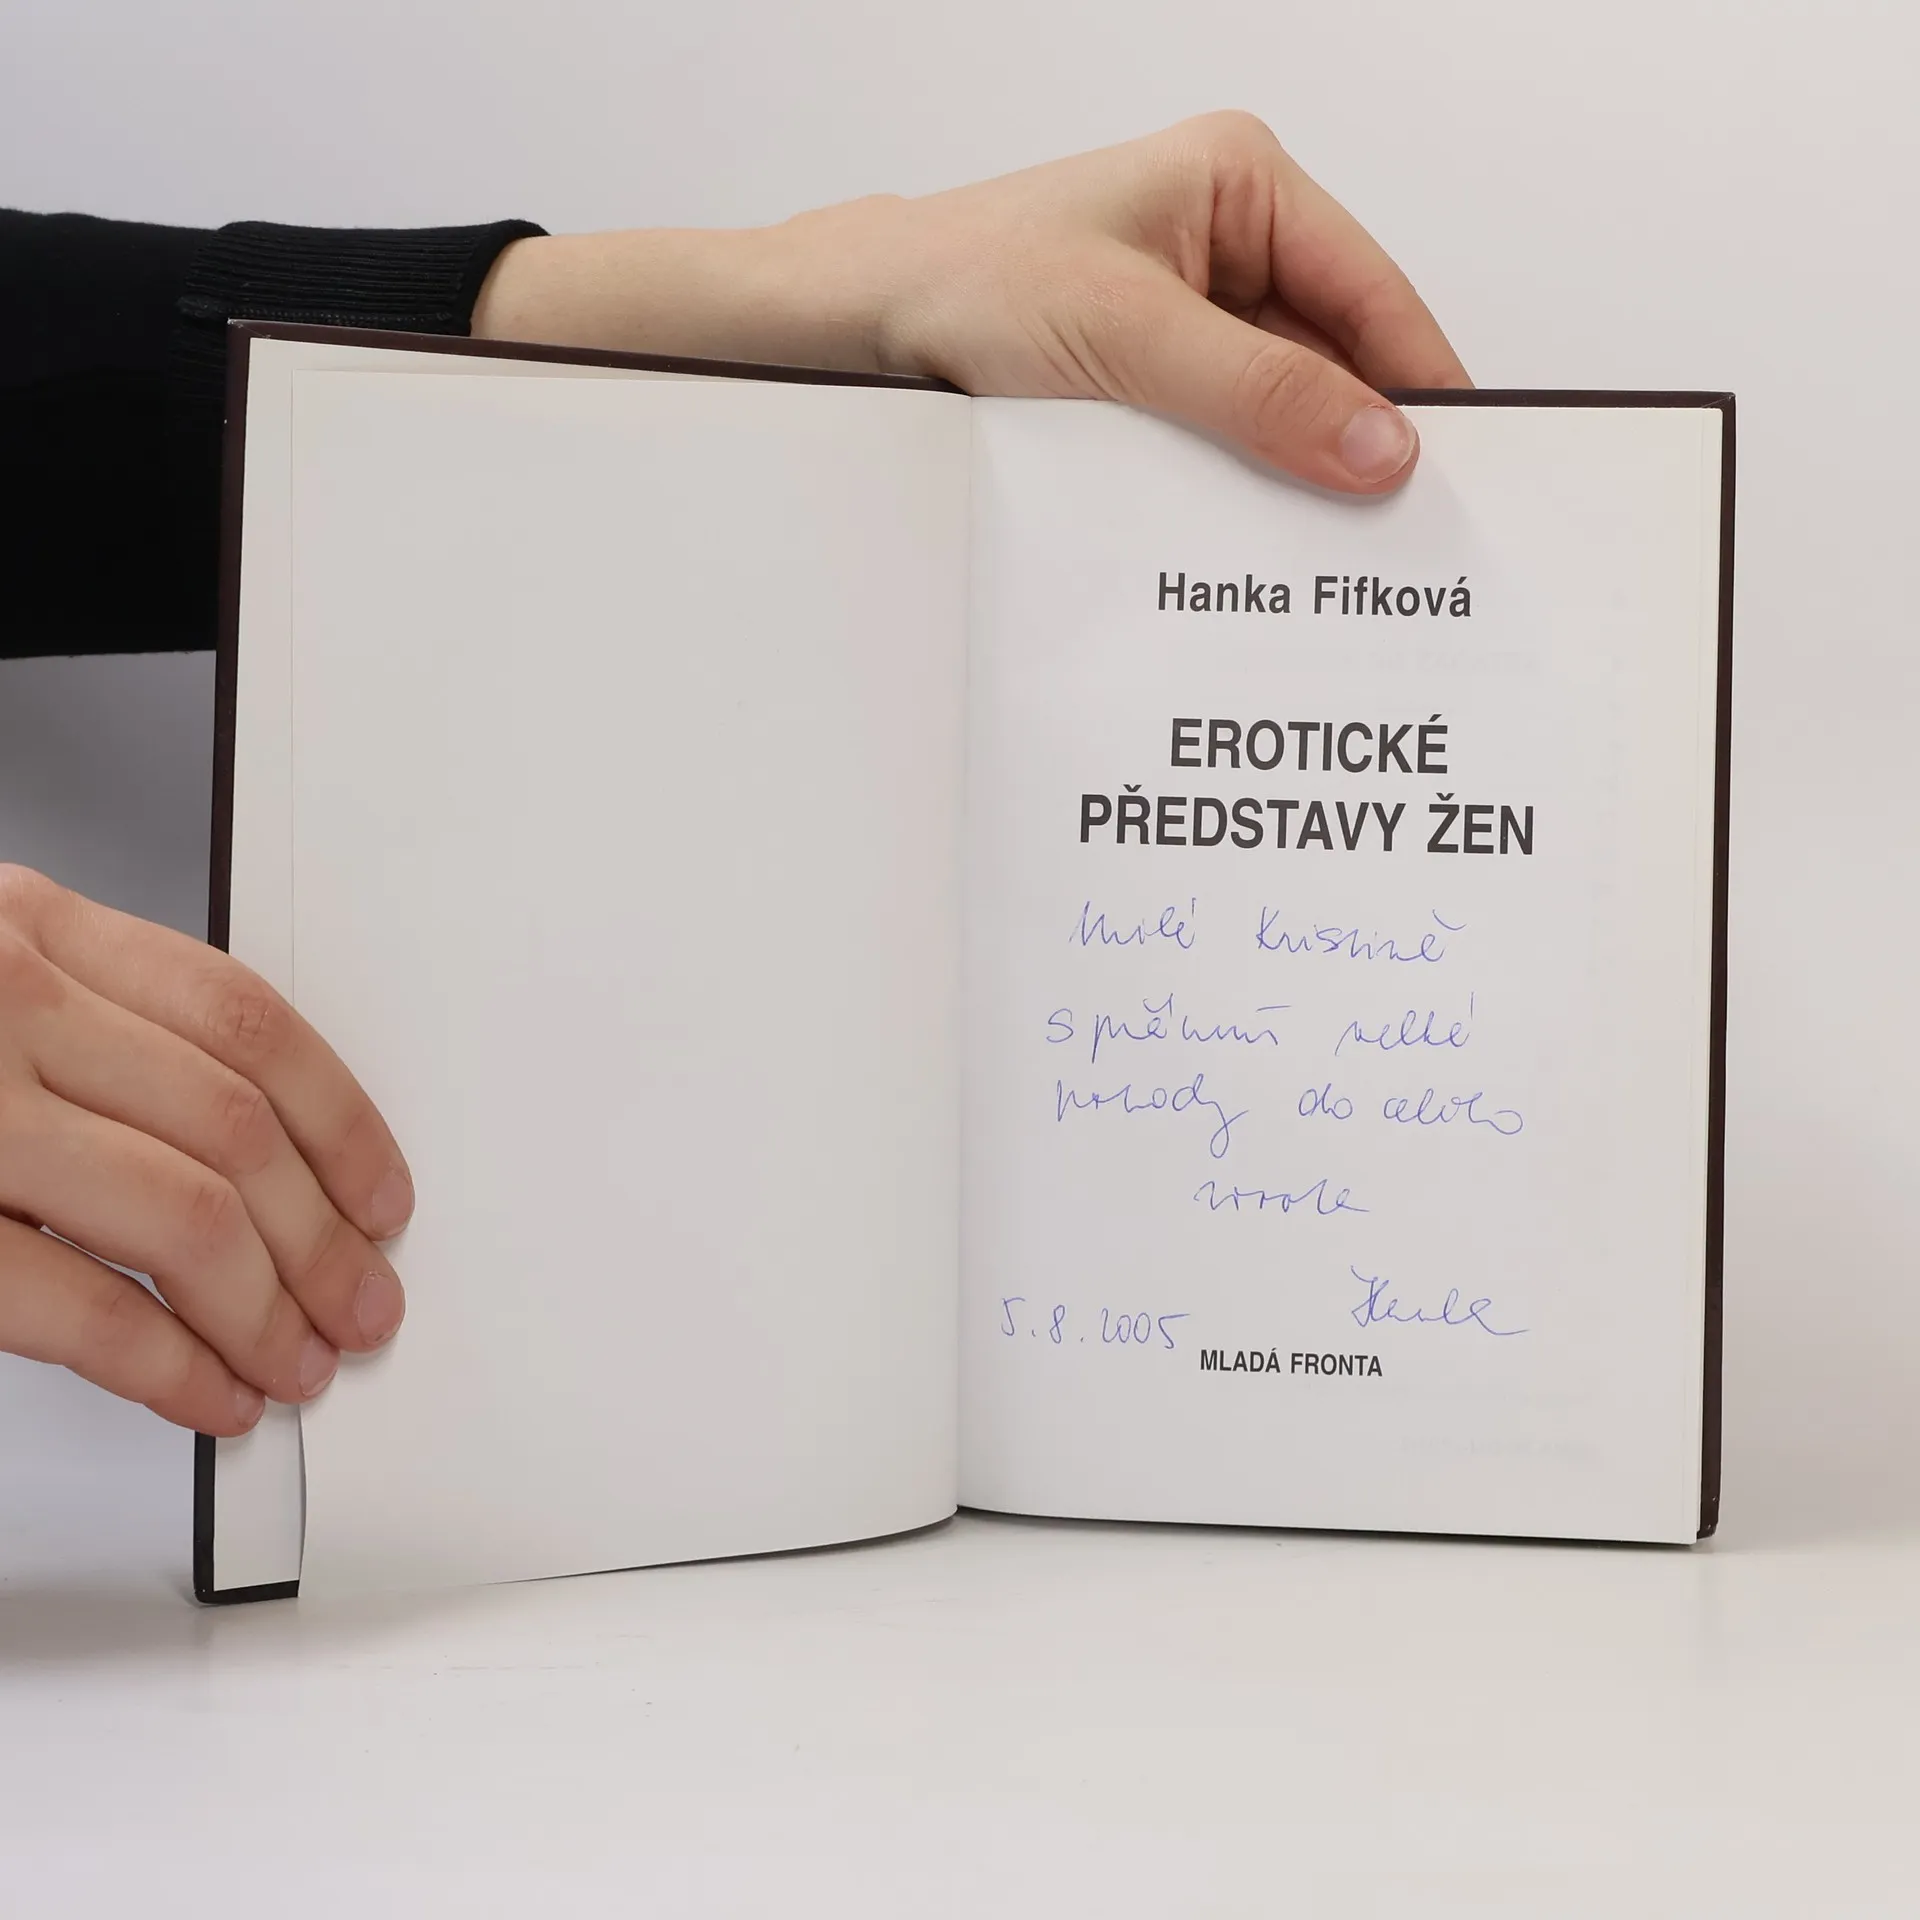 Hanka Fifková
EROTICKÉ
PŘEDSTAVY ŽEN
Milé Kristině
s přáním velké
pohody do celého
života
5.8.2005 Hanka
MLADÁ FRONTA